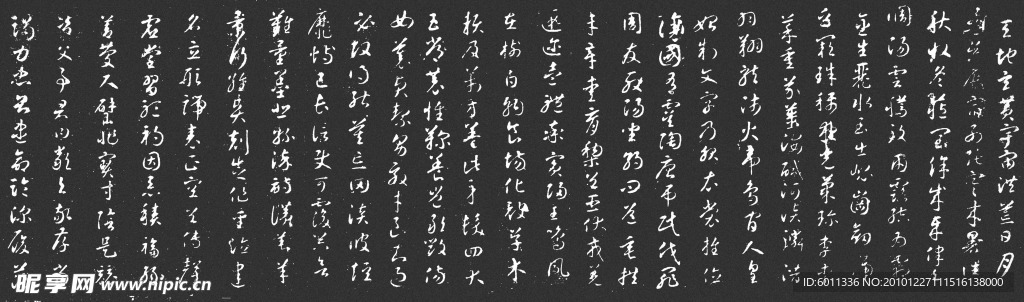 天地玄黃宇宙洪荒日月
盈昃辰宿列張寒來暑往
秋收冬藏閏餘成歲律呂
調陽雲騰致雨露結為霜
金生麗水玉出崑岡劍號
巨闕珠稱夜光果珍李柰
菜重芥薑海鹹河淡鱗潛
羽翔龍師火帝鳥官人皇
始制文字乃服衣裳推位
讓國有虞陶唐弔民伐罪
周發殷湯坐朝問道垂拱
平章愛育黎首臣伏戎羌
遐邇壹體率賓歸王鳴鳳
在樹白駒食場化被草木
賴及萬方蓋此身髮四大
五常恭惟鞠養豈敢毀傷
女慕貞潔男效才良知過
必改得能莫忘罔談彼短
靡恃己長信使可覆器欲
難量墨悲絲染詩讚羔羊
景行維賢剋念作聖德建
名立形端表正空谷傳聲
虛堂習聽禍因惡積福緣
善慶尺璧非寶寸陰是競
資父事君曰嚴與敬孝當
竭力忠則盡命臨深履薄
昵享网 www.nipic.cn
ID:6011336 NO:20101227111516138000